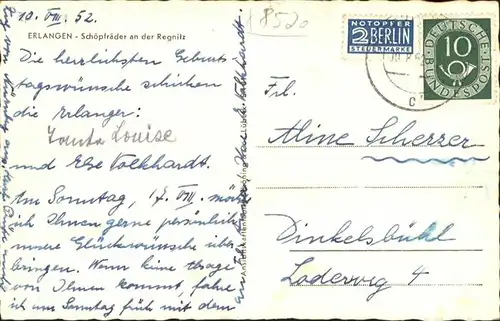 10. VIII. 52.
ERLANGEN - Schöpfräder an der Regnitz
Die herzlichsten Geburts
tagswünsche schicken
die Erlanger:
Tante Louise
und Else Volkhardt.
Am Sonntag, 17. VIII. möchte
ich Ihnen gerne persönlich
unsere Glückwünsche über
bringen. Wenn keine Absage
von Ihnen kommt, fahre
ich am Sonntag früh mit dem
8520
NOTOPFER
2 BERLIN
STEUERMARKE
DEUTSCHE
BUNDESPOST
10
Frl.
Aline Scherzer
Dinkelsbühl
Loderweg 4